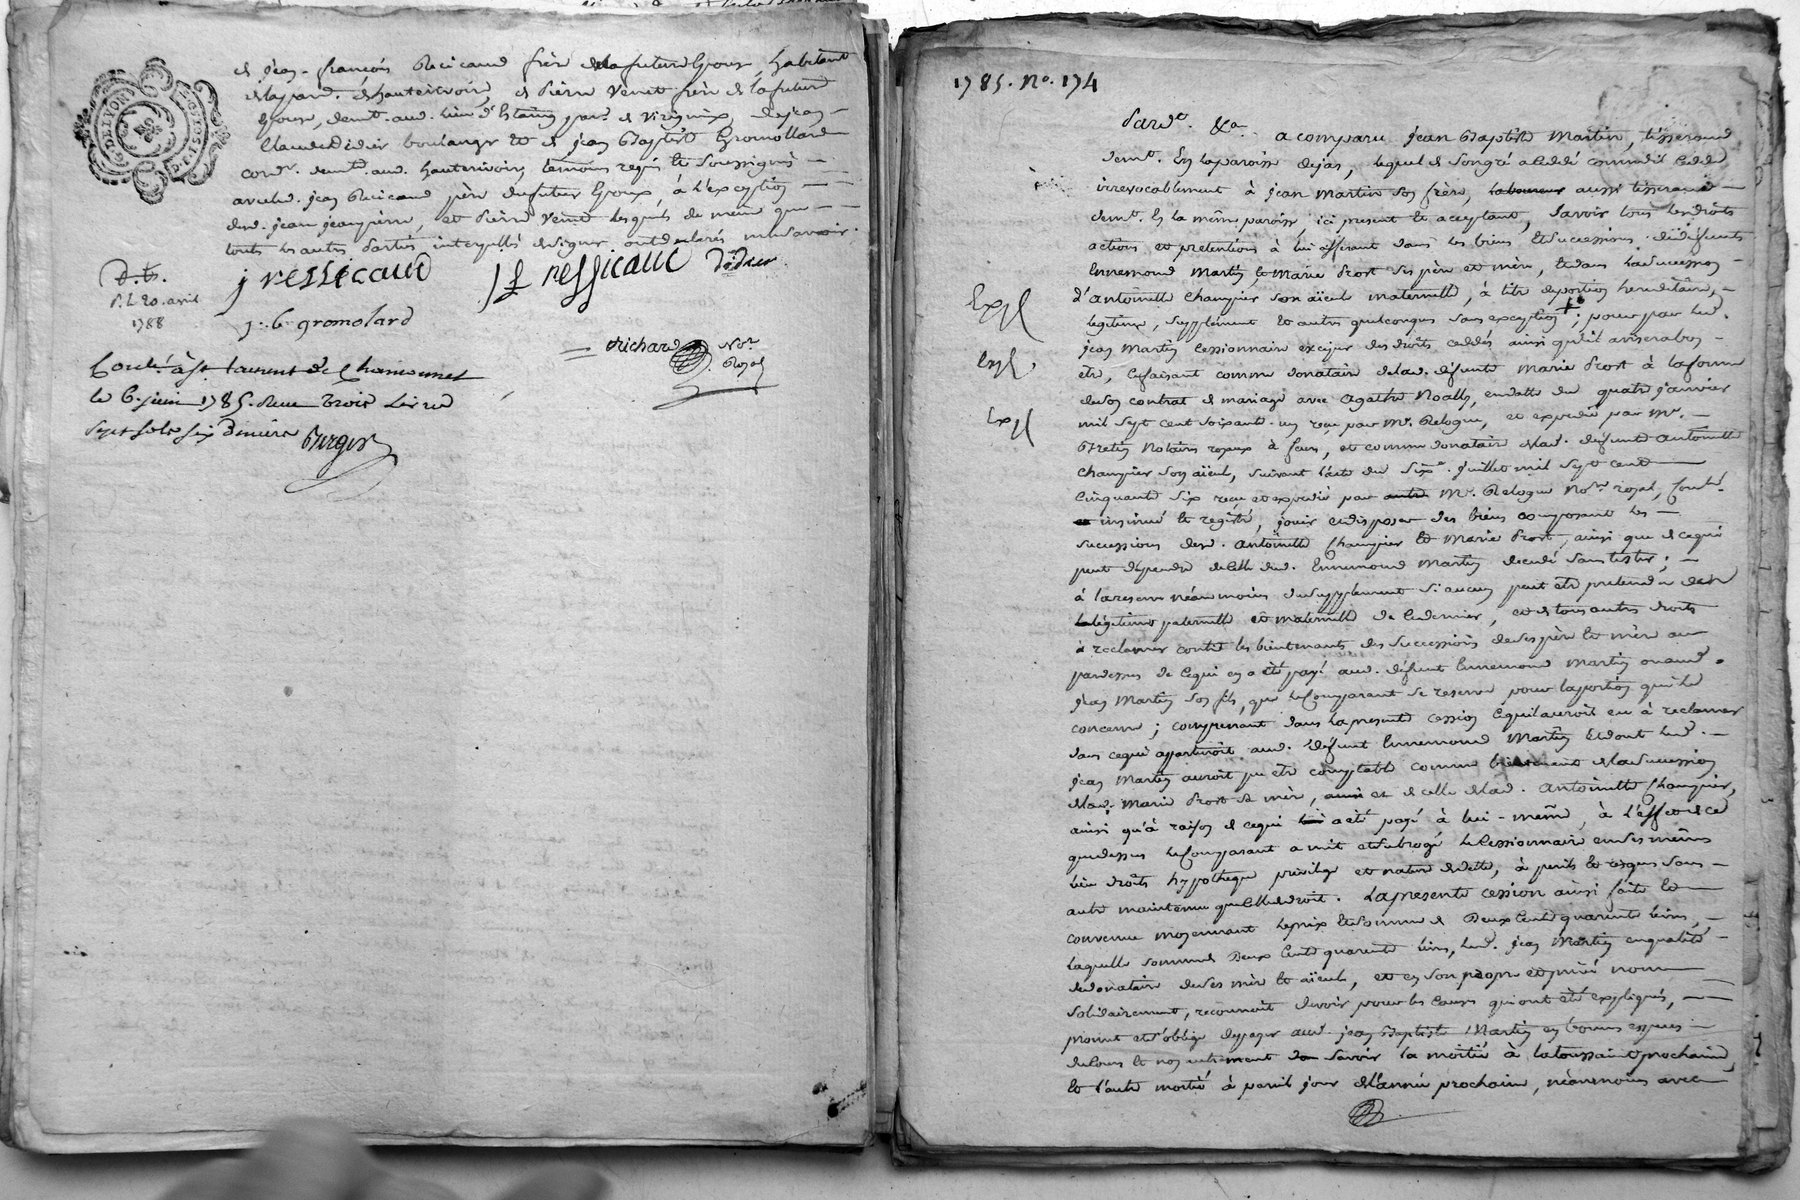 et jean-françois Ressicaud frère de la future Epouse, habitant
de la par. de hauterivoire, et pierre Venet frère de la future
Epouse, demt. aud. lieu d'Etaing par. de virigneux, de jean-
Claude didier boulanger et de jean Baptiste Gromollard
cordr. demt. aud. hauterivoire temoins requis et soussignés
avec led. jean Ressicaud père du futur Epoux à l'exception
dud. jean jeanpierre, et pierre Venet lesquels de meme que
touts les autres parties interpellés de signer ont declarés ne scavoir.
j ressicaud jf ressicaud didier
D. G.
20. avril
1788
j. b. gromolard
richard Nore.
Royal
Conlé. à St. Laurent de Chamousset
le 6. juin 1785. Reçu trois livres
sept sols six deniers
G. DE LYON
1785. No. 174
Pardt. &a. a comparu jean Baptiste Martin, tisserand
demt. En la paroisse de jas, lequel de son gré a Cedé comme il Cede
irrevocablement à jean Martin son frère, laboureur aussi tisserand
demt. En la même paroisse, ici present et acceptant, Savoir tous les droits
actions et pretentions à lui afferant dans les biens et Successions de défunts
Ennemond Martin, et Marie Prost ses père et mère, et dans la Succession
d'Antoinette Champier son aïeule maternelle, à titre de portion hereditaire,
legitime, supplément et autres quelconques sans exception; pour par led.
jean Martin Cessionnaire exiger des droits cedés ainsi qu'il avisera bon
être, En faisant comme donataire de lad. défunte Marie Prost à la forme
de son contrat de mariage avec Agathe Noally, en datte du quatre janvier
mil sept cent soixante-un reçu par Me. Relogue, et expedié par Me.
Notaires royaux à feurs, et comme donataire de lad. defunte Antoinette
Champier son aïeule, suivant l'acte du Sixe. juillet mil sept cent
Cinquante six reçu et expedié par Me. Relogue Nore. royal, Conlé.
insinué et registré, jouir et disposer des biens composant les
successions desd. Antoinette Champier et Marie Prost, ainsi que de ce qui
peut dependre de Celle dud. Ennemond Martin decedé sans tester;
à la reserve néanmoins du supplement si aucun peut être pretendu de la
legitime paternelle et maternelle de Ce dernier, et de tous autres droits
à reclamer contre les bientenants des successions de ses père et mère au
pardessus de Ce qui en a été payé aud. défunt Ennemond Martin ou aud.
jean Martin son fils, que le Comparant se reserve pour la portion qui le
concerne; comprenant dans la presente cession Ce qu'il auroit eu à reclamer
dans Ce qui appartenoit aud. défunt Ennemond Martin Et dont led.
jean Martin auroit pu être comptable comme bientenant de la Succession
de lad. Marie Prost sa mère, et de celle de lad. Antoinette Champier,
ainsi qu'à raison de ce qui a été payé à lui-même, à l'effet de Ce
que dessus le Comparant a mit et subrogé le Cessionnaire en ses mêmes
lieu droits hypotheque privilege et nature de dette, à perils et risques sans
autre maintenue que Celle de droit. La presente cession ainsi faite et
convenue moyennant le prix Et Somme de Deux Cents quarante livres,
laquelle somme de Deux Cents quarante livres, led. jean Martin en qualité
de donataire de ses mère et aïeule, et en son propre et privé nom
solidairement, reconnoit devoir pour les Causes qui ont été expliquées,
promet et s'oblige de payer aud. jean Baptiste Martin en bonnes especes
de cours et non autrement savoir la moitié à la toussaint prochaine
et l'autre moitié à pareil jour de l'année prochaine, néanmoins avec
Expl
Expl
Expl